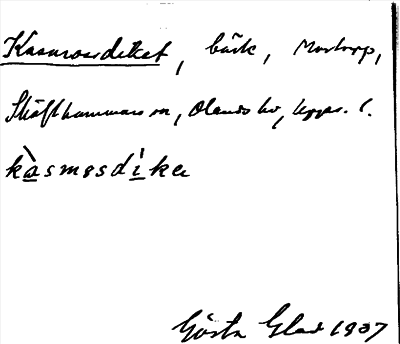 Kasmossdiket, bäck, Mostorp,
Skäfthammars sn, Olands hd, Upps. l.
kàsmosdíke
Gösta Glad 1937